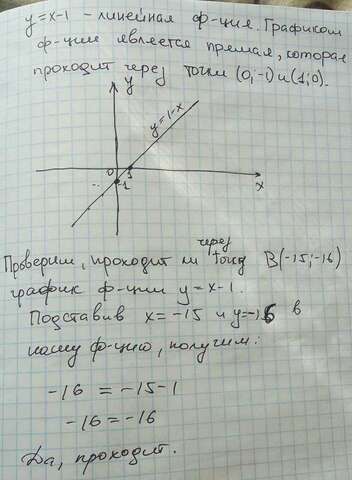 y=x-1 - линейная ф-ция. Графиком
ф-ции является прямая, которая
проходит через точки (0;-1) и (1;0).
y
y=1-x
0 1
-1
x
Проверим, проходит ли через точку B(-15;-16)
график ф-ции y=x-1.
Подставив x=-15 и y=-16 в
нашу ф-цию, получим:
-16 = -15-1
-16 = -16
Да, проходит.